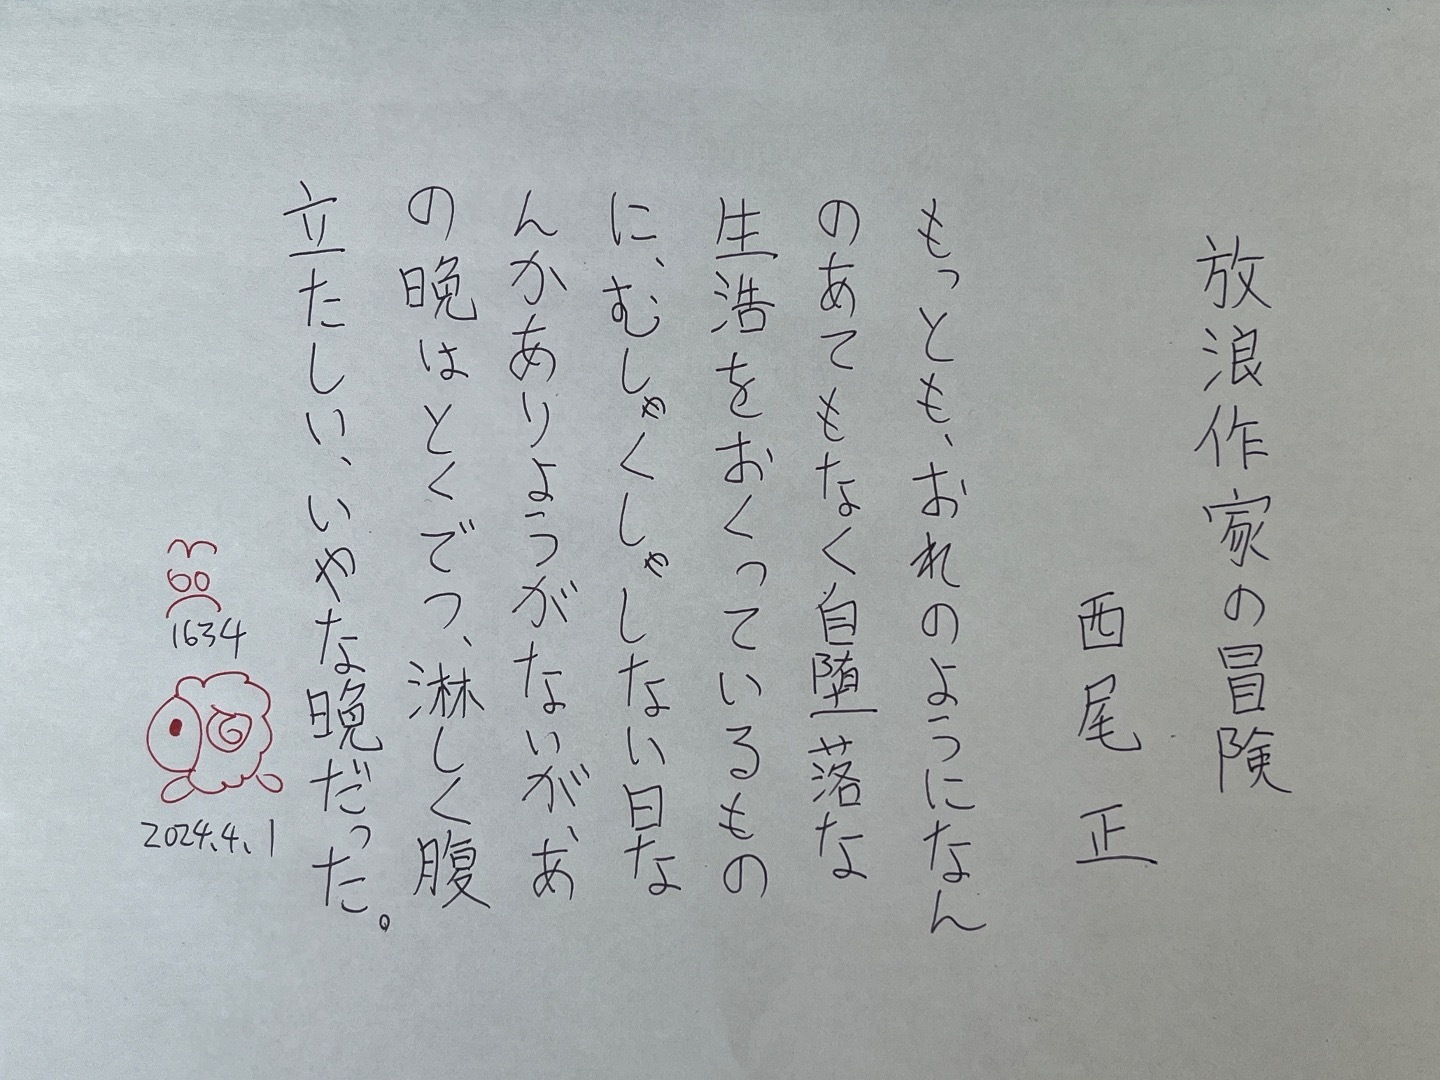 放浪作家の冒険
西尾正
もっとも、おれのようになん
のあてもなく自堕落な
生活をおくっているもの
に、むしゃくしゃしない日な
んかありようがないが、あ
の晩はとくでつ、淋しく腹
立たしい、いやな晩だった。
1634
2024.4.1